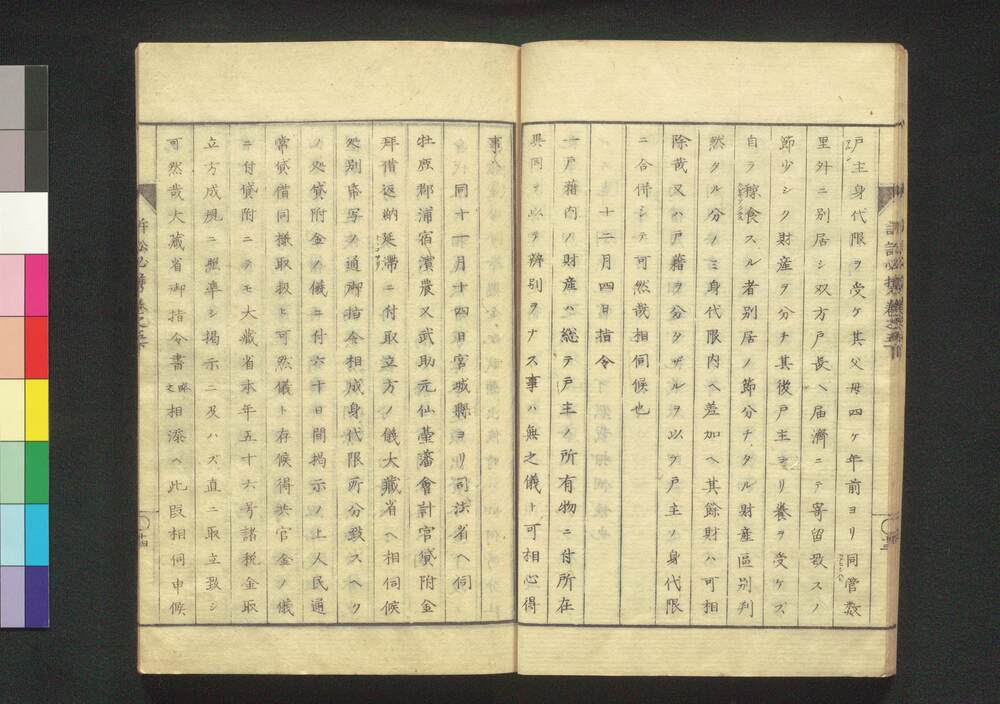 戸主身代限ヲ受ケ其父母四ケ年前ヨリ同管数
里外ニ別居シ双方戸長ヘ届濟ニテ寄留致スノ
節少シク財産ヲ分チ其後戸主ヨリ養ヲ受ケズ
自ラ稼食スル者別居ノ節分チタル財産區別判
然タル分ノミ身代限内ヘ差加ヘ其餘財ハ可相
除哉又ハ戸籍ヲ分タザルヲ以テ戸主ノ身代限
ニ合併シテ可然哉相伺候也
十二月四日指令
一戸籍内ノ財産ハ総テ戸主ノ所有物ニ付所在
異同ヲ以テ辨別ヲナス事ハ無之儀ト可相心得
事
同十一月十四日宮城縣ヨリ司法省ヘ伺
牡鹿郡浦宿濱農又武助元仙臺藩會計官貸附金
拜借返納延滞ニ付取立方ノ儀大藏省ヘ相伺候
処別帋写ノ通御指令相成身代限所分致スヘク
ノ処貸附金ノ儀ニ付六十日間掲示ノ上人民通
常貸借同様取扱ト可然儀ト存候得共官金ノ儀
ニ付貸附ニテモ大藏省本年五十六号諸税金取
立方成規ニ照準シ掲示ニ及ハズ直ニ取立致シ
可然哉大藏省御指令書略之相添ヘ此段相伺申候